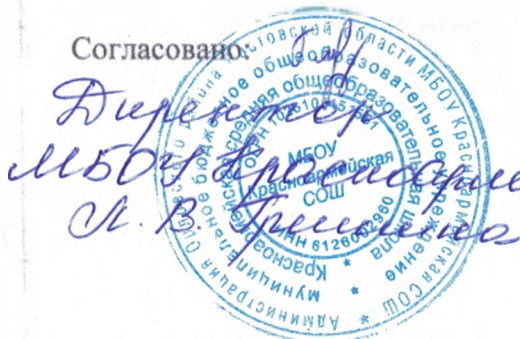 Согласовано:
Директор
МБОУ Красноарме
Л. В.
МБОУ
Красноармейская
СОШ
Администрация района Ростовской области МБОУ Красноармейская СОШ
муниципальное бюджетное общеобразовательное учреждение
Красноармейская средняя общеобразовательная школа
ИНН 6126002960